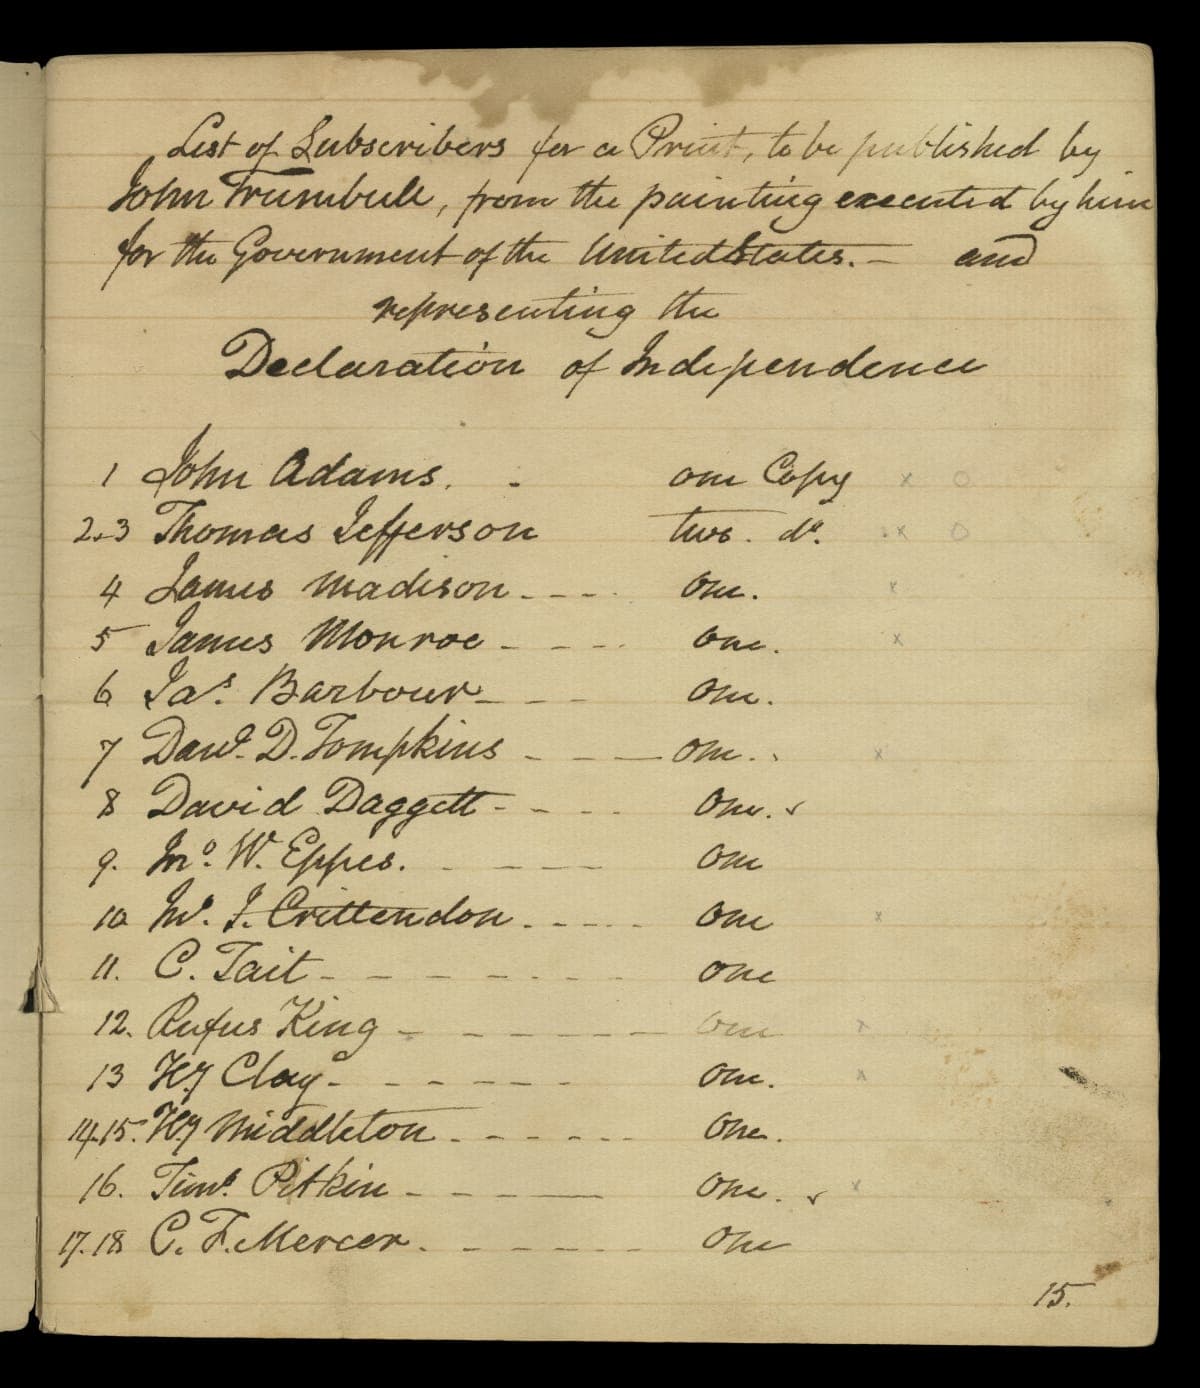 List of Subscribers for a Print, to be published by
John Trumbull, from the painting executed by him
for the Government of the United States. — and
representing the
Declaration of Independence
1 John Adams. - one Copy x o
2.3 Thomas Jefferson two. do. x o
4 James Madison - - - - One. x
5 James Monroe - - - - One. x
6 Jas. Barbour - - - One.
7 Danl. D. Tompkins - - — One. x
8 David Daggett - - - - One. ✓
9. Jno. W. Eppes. - - - - One
10 Jno. J. Crittendon. - - - - One x
11. C. Tait - - - - - - - One
12. Rufus King - - - - - - One x
13 Hy Clay - - - - - - One. x
14.15. Hy Middleton - - - - - - One.
16. Timo. Pitkin - - - — One. ✓ x
17.18 C. F. Mercer. - - - - - One
15.